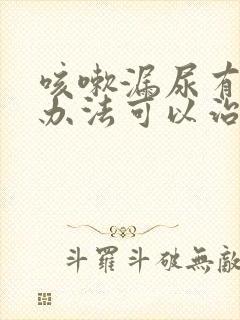 咳嗽漏尿有
办法可以治
斗羅斗破無敵